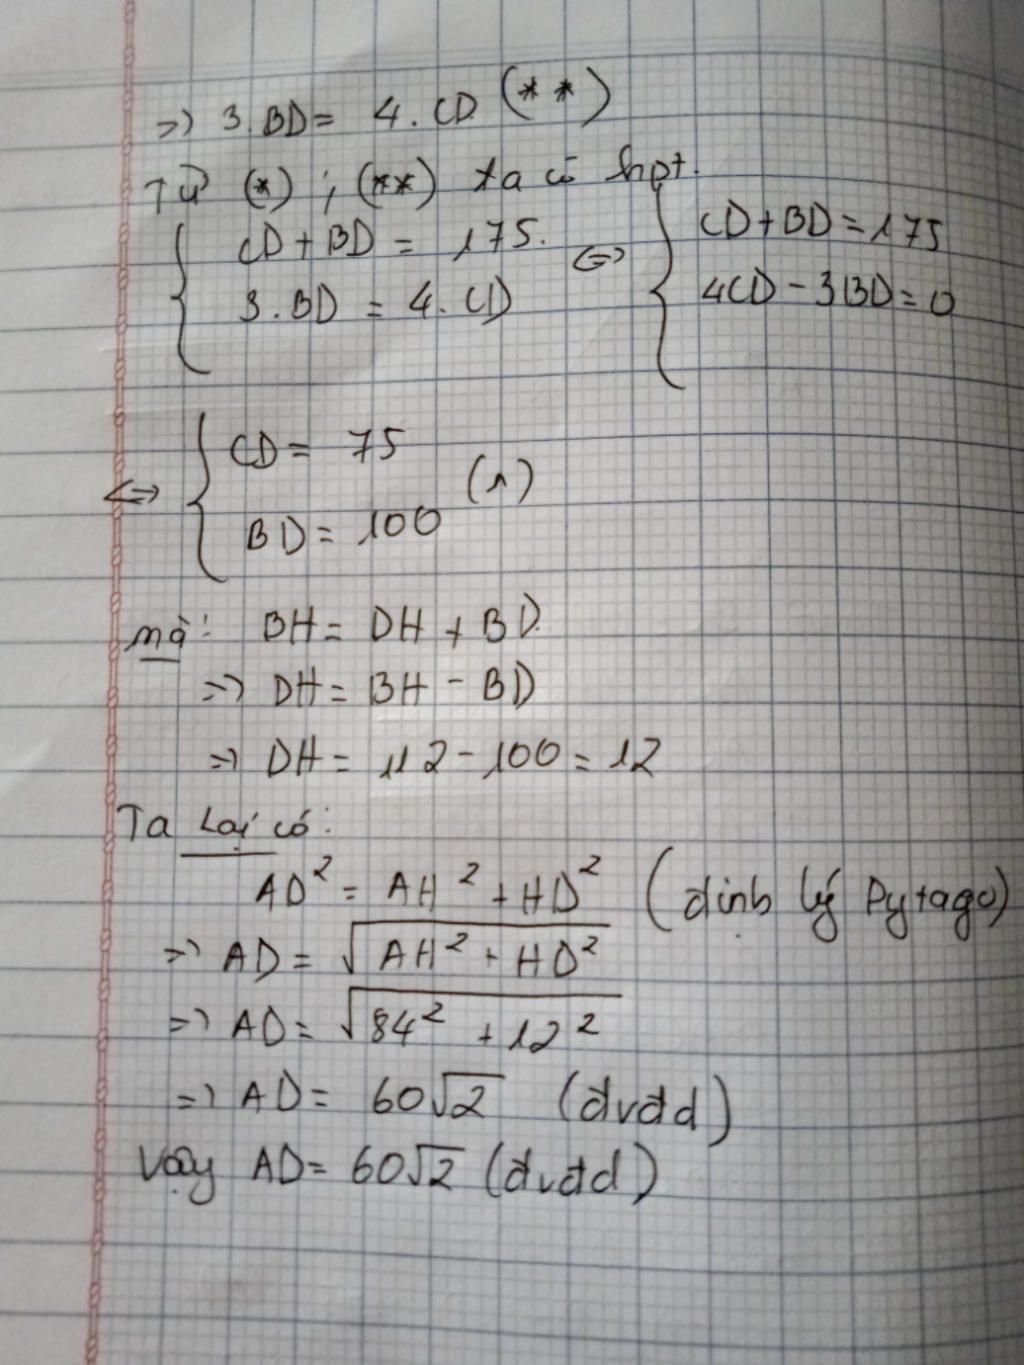 => 3.BD = 4.CD (**)
Từ (*) ; (**) ta có hpt.
{ CD + BD = 175. <=> { CD + BD = 175
3.BD = 4.CD 4CD - 3BD = 0
<=> { CD = 75
BD = 100 (1)
mà: BH = DH + BD.
=> DH = BH - BD
=> DH = 112 - 100 = 12
Ta lại có:
AD² = AH² + HD² (định lý Pytago)
=> AD = √(AH² + HD²)
=> AD = √(84² + 12²)
=> AD = 60√2 (đvđd)
Vậy AD = 60√2 (đvđd)